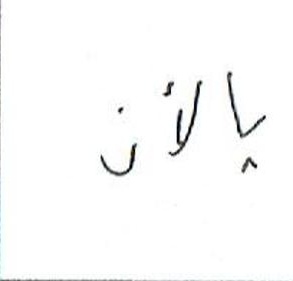 پالأن